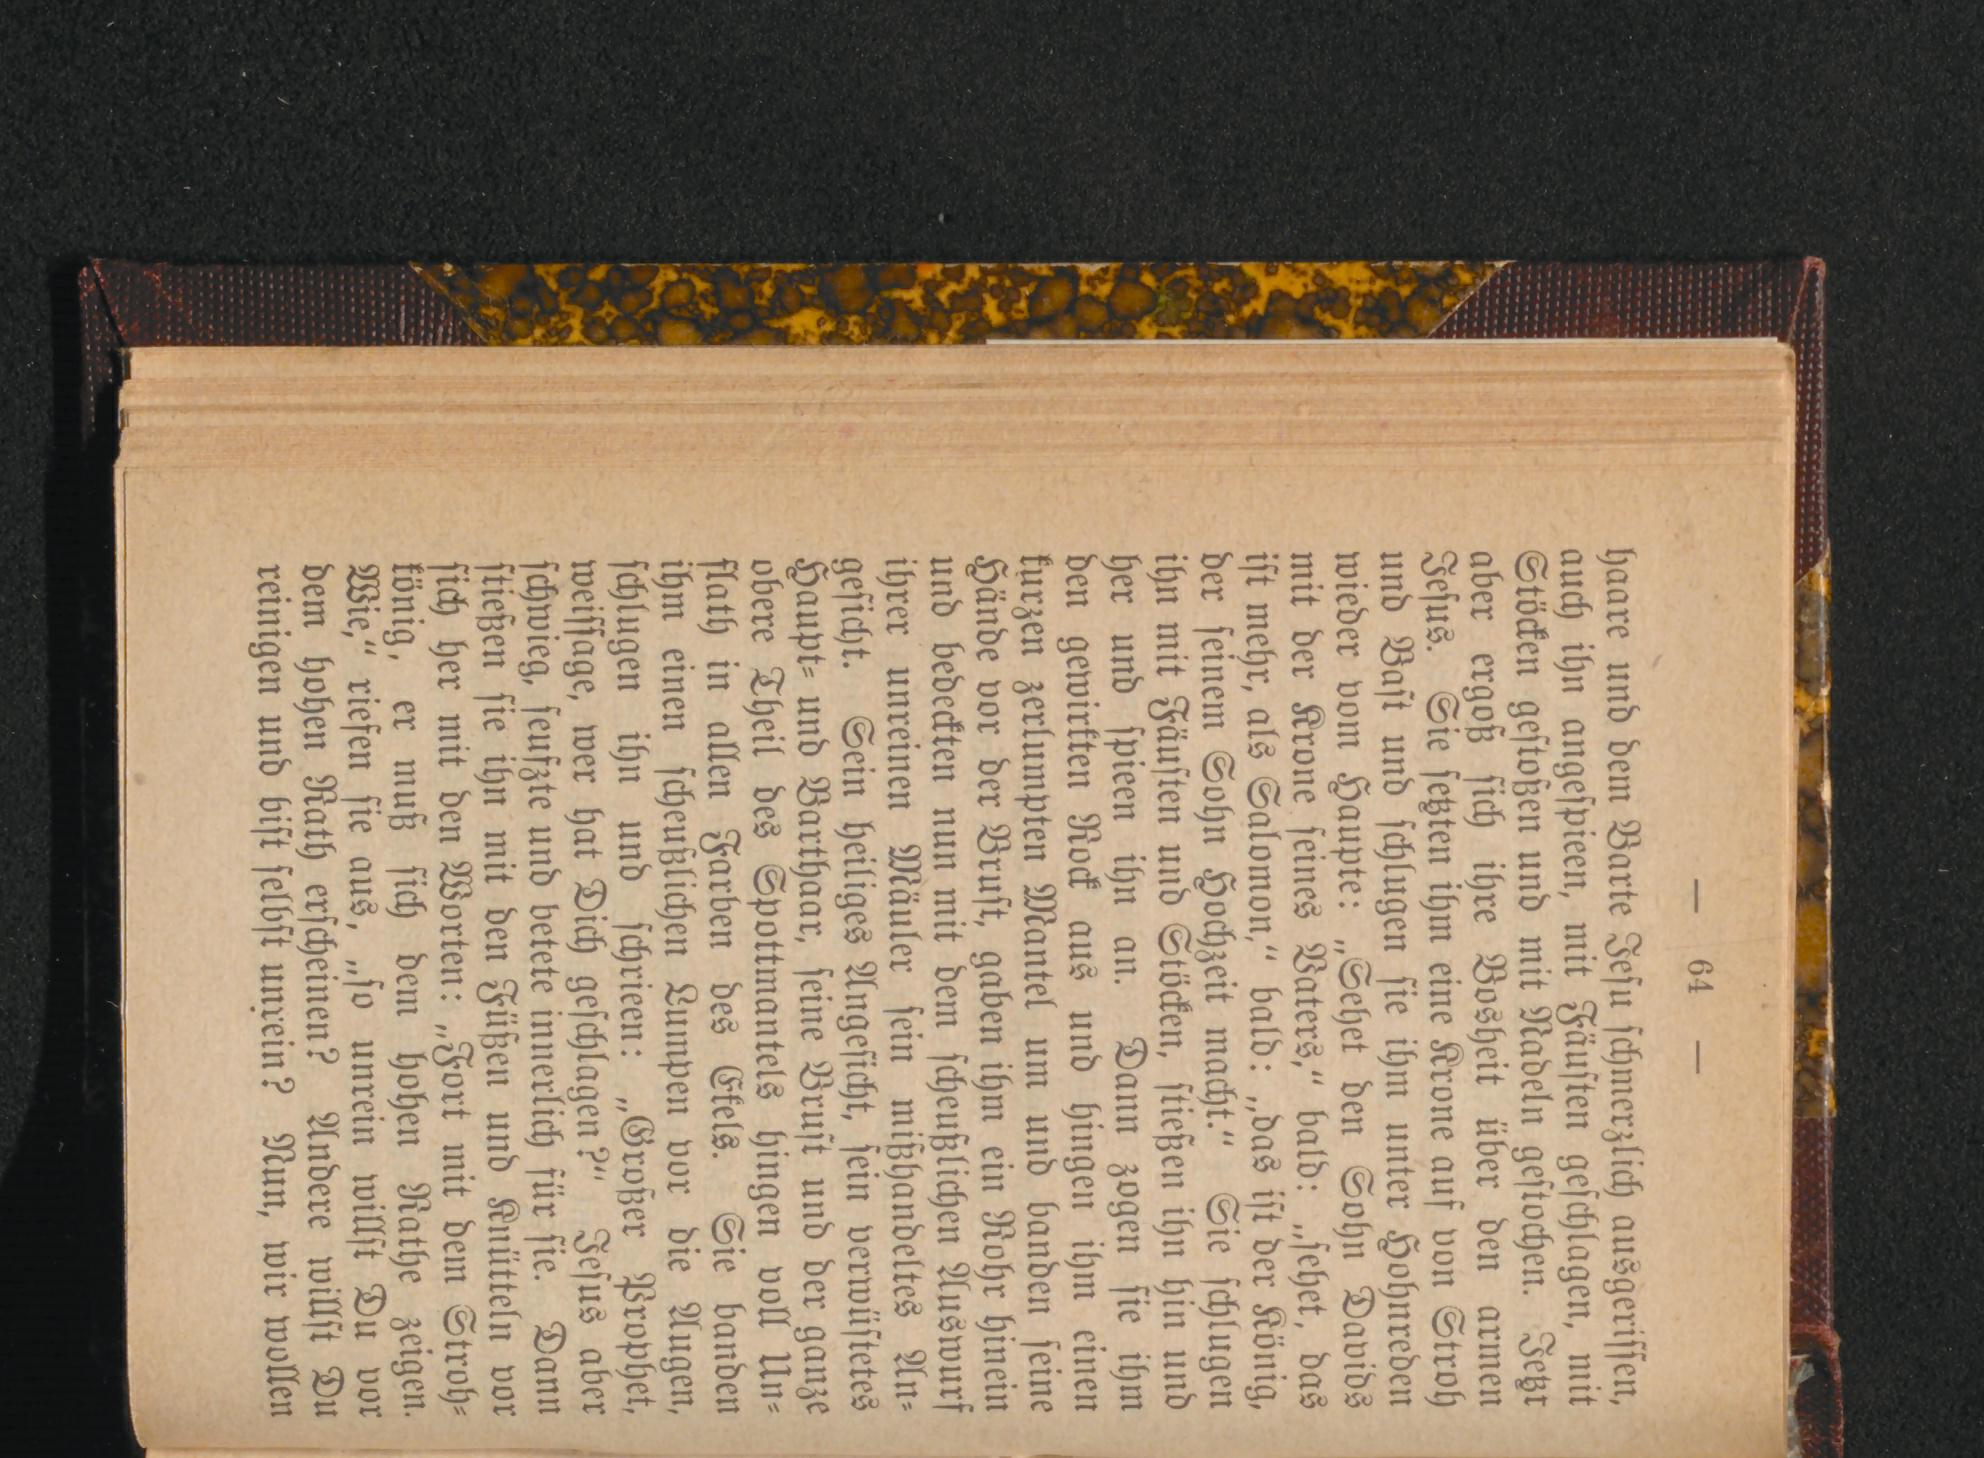 — 64 —
haare und dem Barte Jeſu ſchmerzlich ausgeriſſen,
auch ihn angeſpieen, mit Fäuſten geſchlagen, mit
Stöcken geſtoßen und mit Nadeln geſtochen. Jetzt
aber ergoß ſich ihre Bosheit über den armen
Jeſus. Sie ſetzten ihm eine Krone auf von Stroh
und Baſt und ſchlugen ſie ihm unter Hohnreden
wieder vom Haupte: „Sehet den Sohn Davids
mit der Krone ſeines Vaters,“ bald: „ſehet, das
iſt mehr, als Salomon,“ bald: „das iſt der König,
der ſeinem Sohn Hochzeit macht.“ Sie ſchlugen
ihn mit Fäuſten und Stöcken, ſtießen ihn hin und
her und ſpieen ihn an. Dann zogen ſie ihm
den gewirkten Rock aus und hingen ihm einen
kurzen zerlumpten Mantel um und banden ſeine
Hände vor der Bruſt, gaben ihm ein Rohr hinein
und bedeckten nun mit dem ſcheußlichen Auswurf
ihrer unreinen Mäuler ſein mißhandeltes An⸗
geſicht. Sein heiliges Angeſicht, ſein verwüſtetes
Haupt⸗ und Barthaar, ſeine Bruſt und der ganze
obere Theil des Spottmantels hingen voll Un⸗
flath in allen Farben des Ekels. Sie banden
ihm einen ſcheußlichen Lumpen vor die Augen,
ſchlugen ihn und ſchrieen: „Großer Prophet,
weiſſage, wer hat Dich geſchlagen?“ Jeſus aber
ſchwieg, ſeufzte und betete innerlich für ſie. Dann
ſtießen ſie ihn mit den Füßen und Knütteln vor
ſich her mit den Worten: „Fort mit dem Stroh⸗
könig, er muß ſich dem hohen Rathe zeigen.
Wie,“ riefen ſie aus, „ſo unrein willſt Du vor
dem hohen Rath erſcheinen? Andere willſt Du
reinigen und biſt ſelbſt unrein? Nun, wir wollen